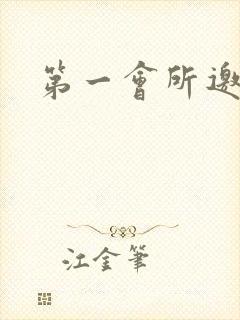 第一會所邀
江金筆